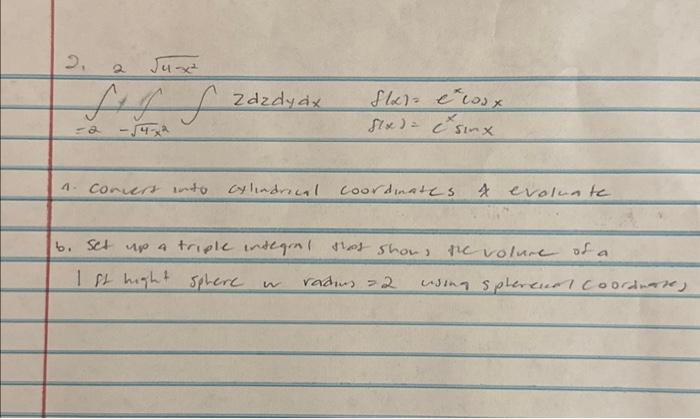 2. 2 √4-x²
∫ ∫ ∫ zdzdydx f(x) = e^x cosx
-2 -√4-x² f(x) = e^x sinx
a. convert into cylindrical coordinates & evaluate
b. Set up a triple integral that shows the volume of a
1 ft hight sphere w radius = 2 using sphereical coordinates